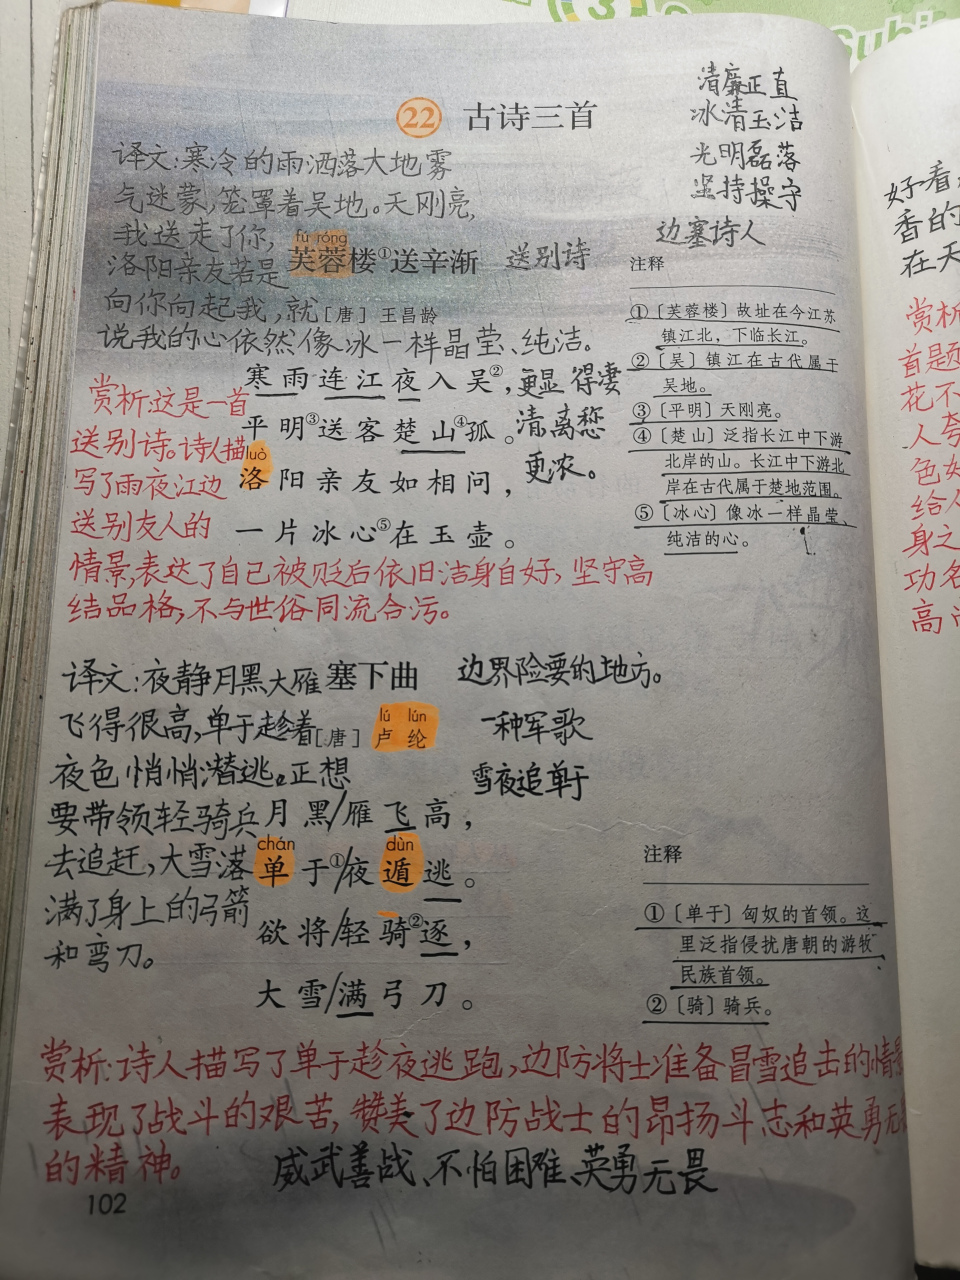 22 古诗三首
清廉正直
冰清玉洁
光明磊落
坚持操守
边塞诗人
译文:寒冷的雨洒落大地雾
气迷蒙,笼罩着吴地。天刚亮,
我送走了你,
洛阳亲友若是
向你问起我,就
说我的心依然像冰一样晶莹、纯洁。
fú róng
芙蓉楼①送辛渐
送别诗
[唐] 王昌龄
寒雨连江夜入吴②,
平明③送客楚山④孤。
luò
洛阳亲友如相问,
一片冰心⑤在玉壶。
更显得凄
清,离愁
更浓。
注释
①〔芙蓉楼〕故址在今江苏
镇江北,下临长江。
②〔吴〕镇江在古代属于
吴地。
③〔平明〕天刚亮。
④〔楚山〕泛指长江中下游
北岸的山。长江中下游北
岸在古代属于楚地范围。
⑤〔冰心〕像冰一样晶莹、
纯洁的心。
赏析:这是一首
送别诗。诗人描
写了雨夜江边
送别友人的
情景,表达了自己被贬后依旧洁身自好,坚守高
结品格,不与世俗同流合污。
译文:夜静月黑大雁
飞得很高,单于趁着
夜色悄悄潜逃。正想
要带领轻骑兵
去追赶,大雪落
满了身上的弓箭
和弯刀。
塞下曲
边界险要的地方。
lú lún
[唐] 卢纶
一种军歌
雪夜追单于
月黑/雁飞高,
chán dùn
单于①/夜遁逃。
欲将/轻骑②逐,
大雪/满弓刀。
注释
①〔单于〕匈奴的首领。这
里泛指侵扰唐朝的游牧
民族首领。
②〔骑〕骑兵。
赏析:诗人描写了单于趁夜逃跑,边防将士准备冒雪追击的情景
表现了战斗的艰苦,赞美了边防战士的昂扬斗志和英勇无
的精神。
威武善战、不怕困难、英勇无畏
102
好看
香的
在天
赏析
首题
花不
人夸
色好
给人
身之
功名
高尚